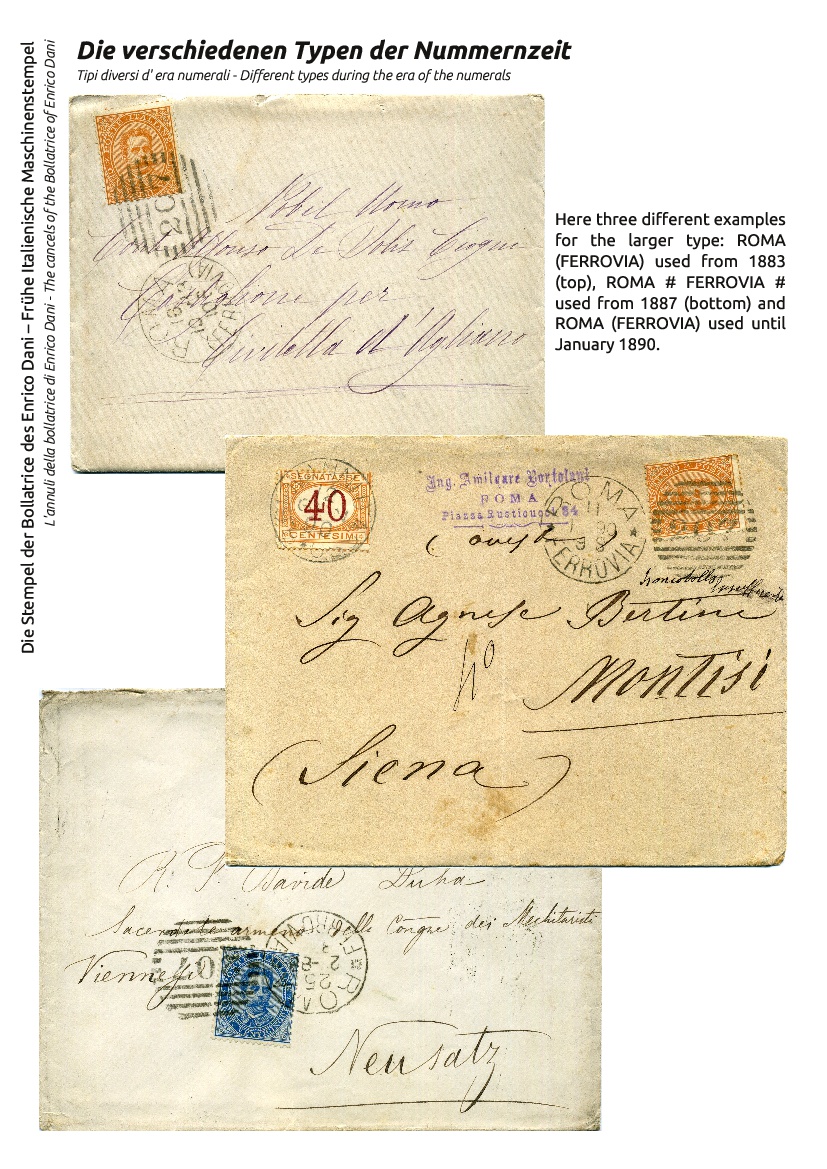 Die verschiedenen Typen der Nummernzeit
Tipi diversi d' era numerali - Different types during the era of the numerals
Die Stempel der Bollatrice des Enrico Dani – Frühe Italienische Maschinenstempel
L'annuli della bollatrice di Enrico Dani - The cancels of the Bollatrice of Enrico Dani
Here three different examples
for the larger type: ROMA
(FERROVIA) used from 1883
(top), ROMA # FERROVIA #
used from 1887 (bottom) and
ROMA (FERROVIA) used until
January 1890.
Nobil Uomo
per
Civitella d'Agliano
ROMA
SEGNATASSE
40
CENTESIMI
Ing. Amilcare Bortolani
ROMA
Piazza Rusticucci 84
ROMA
FERROVIA
Sig Agnese Bertini
Montisi
(Siena)
R. P. Davide
Sacerdote armeno delle Congre dei Mechitaristi
Vienna
ROMA
FERROVIA
25
Neusatz